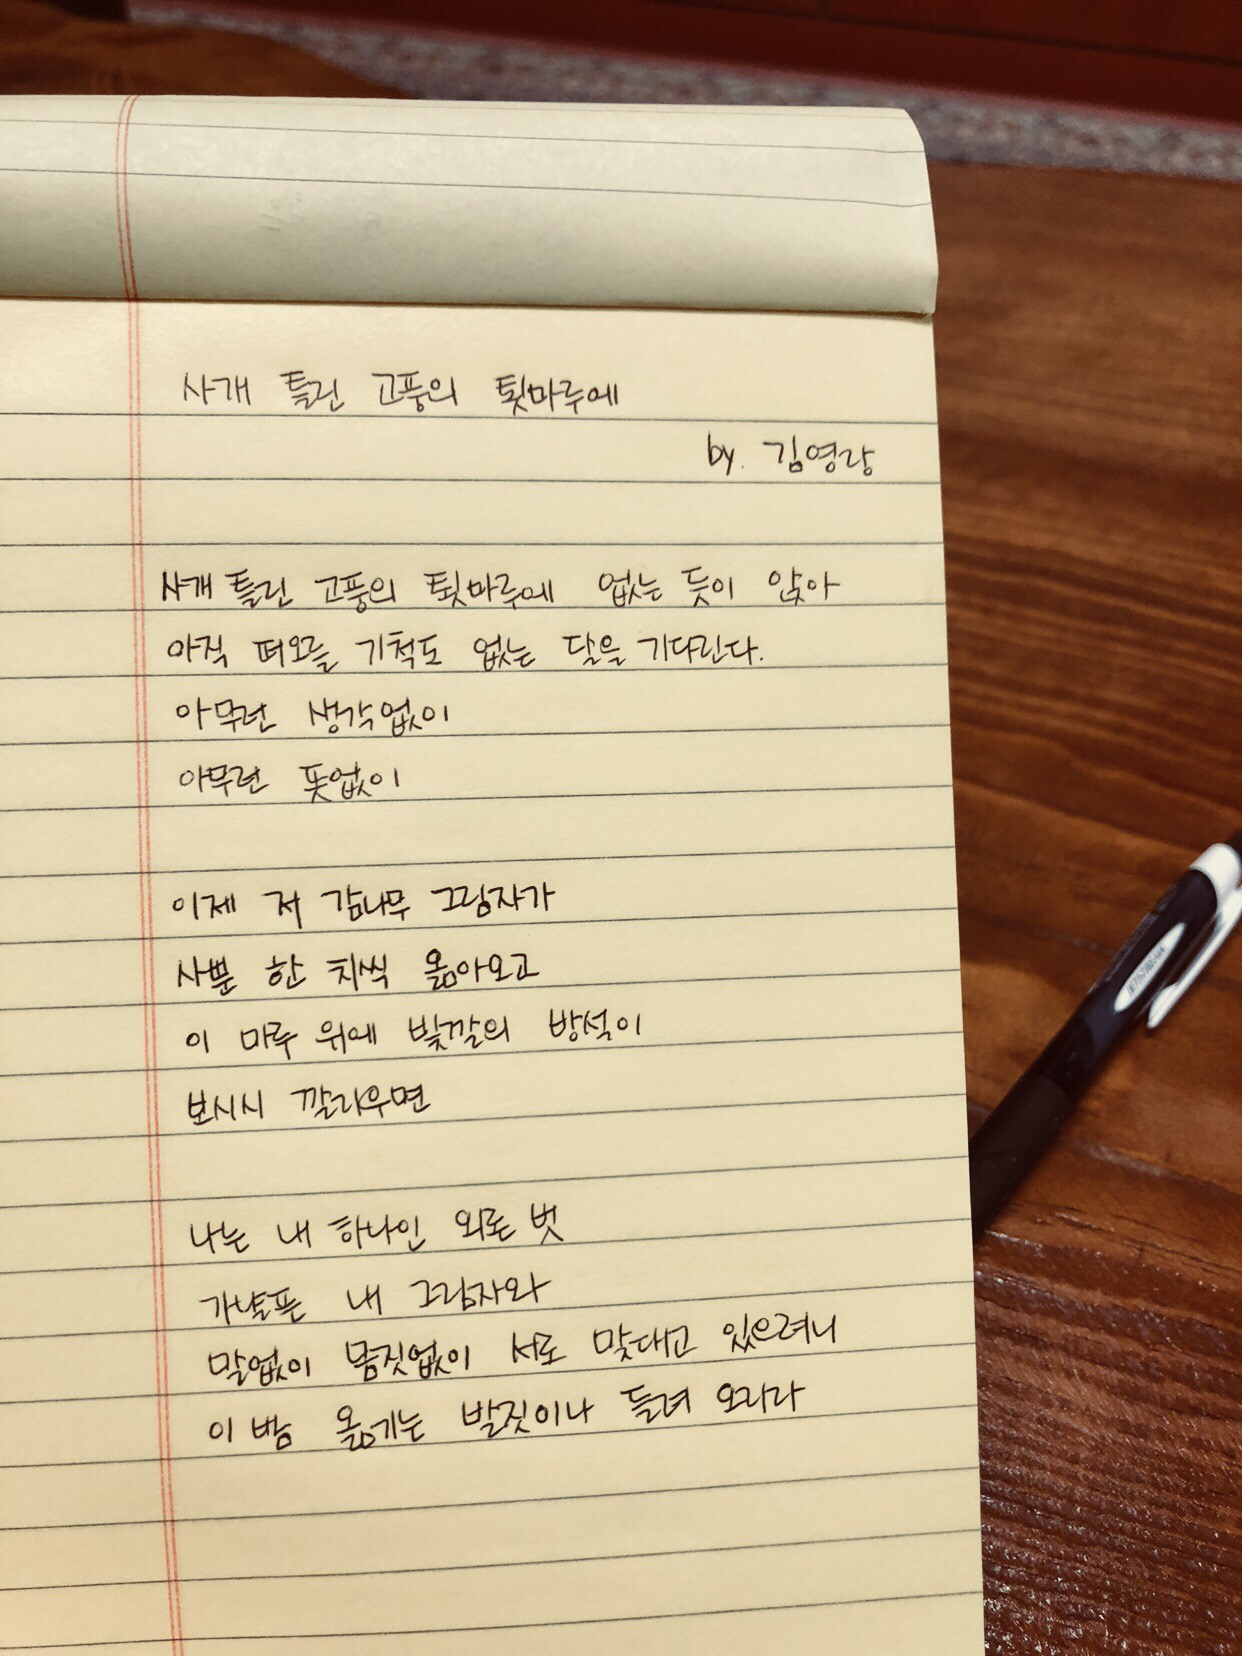 사개 틀린 고풍의 툇마루에
by. 김영랑
사개 틀린 고풍의 툇마루에 없는 듯이 앉아
아직 떠오를 기척도 없는 달을 기다린다.
아무런 생각없이
아무런 뜻없이
이제 저 감나무 그림자가
사뿐 한 치씩 옮아오고
이 마루 위에 빛깔의 방석이
보시시 깔리우면
나는 내 하나인 외론 벗
가냘픈 내 그림자와
말없이 몸짓없이 서로 맞대고 있으려니
이 밤 옮기는 발짓이나 들려 오리라